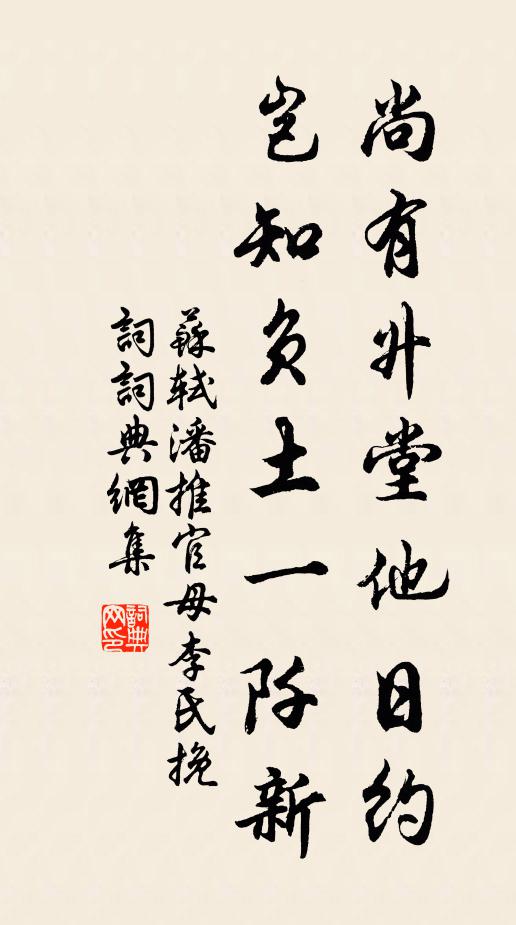 尚有升堂他日约
岂知负土一阡新
蘇轼潘推官母李氏挽
詞詞典網集
詞典网印